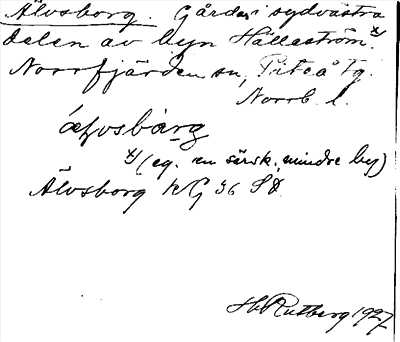 Älvsborg. Gårdar i sydvästra
delen av byn Hälleström x)
Norrfjärden sn, Piteå tg.
Norrb. l.
ælvsbårg
x) (eg. en särsk. mindre by)
Älvsborg KG 36 SÖ
Hb Rutberg 1927